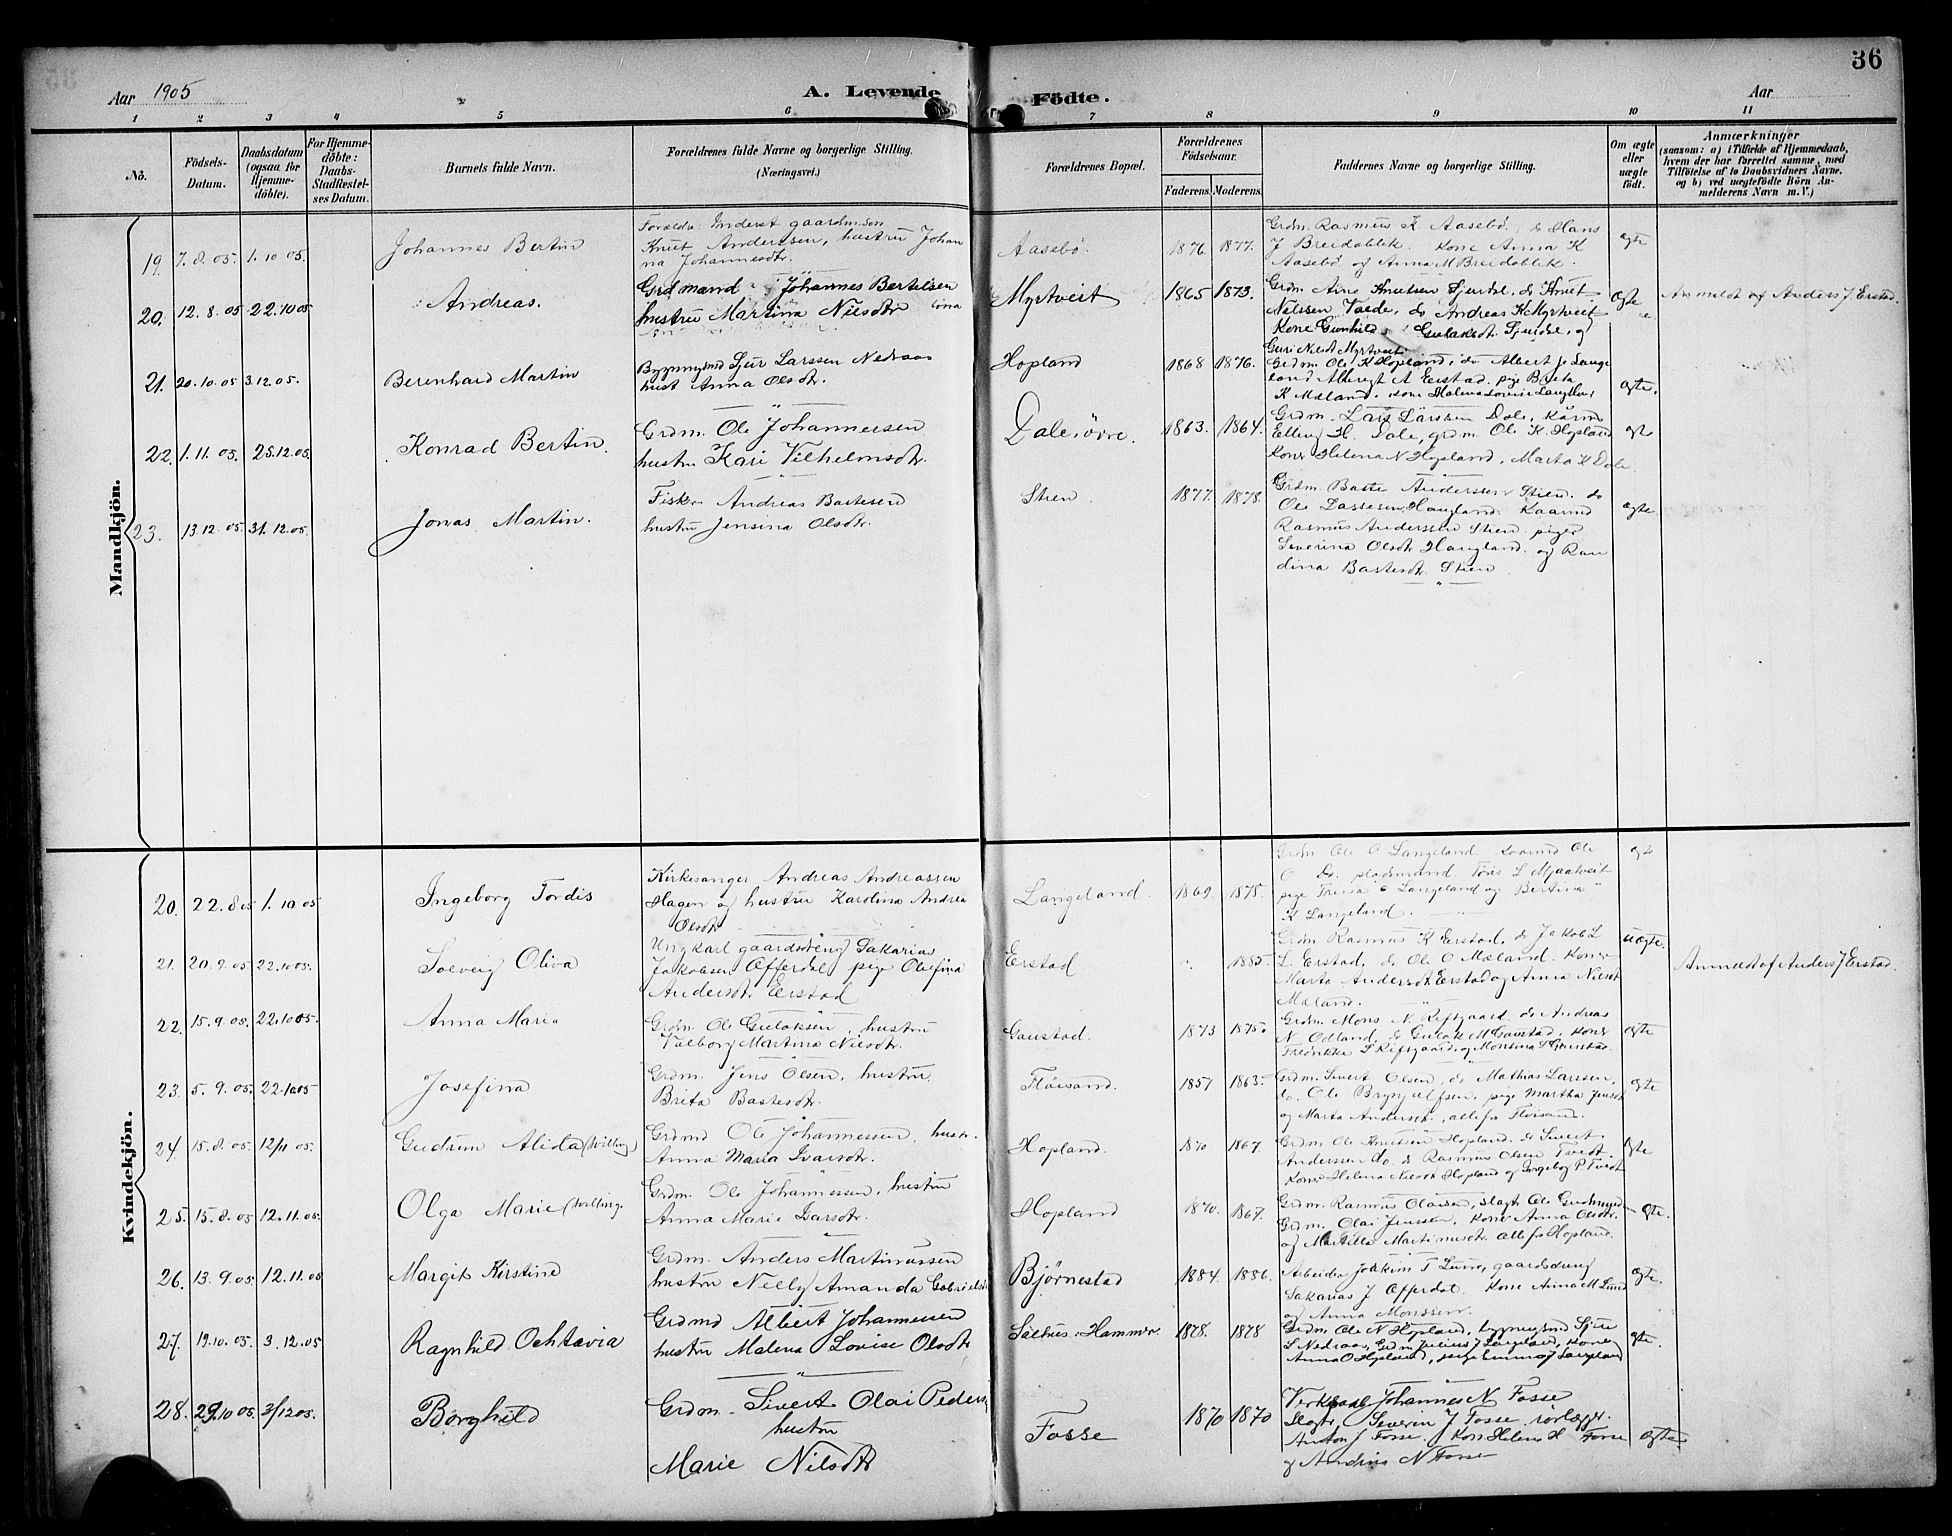 36
Aar 1905
A. Levende
Födte.
Aar
1 2 3 4 5 6 7 8 9 10 11
No.
Födsels-
Datum.
Daabsdatum
(ogsaa for
Hjemme-
döbte).
For Hjemme-
döbte:
Daabs-
Stadfæstel-
ses Datum.
Barnets fulde Navn.
Forældrenes fulde Navne og borgerlige Stilling.
(Næringsvei.)
Forældrenes Bopæl.
Forældrenes
Födselsaar.
Faderens. Moderens.
Faddernes Navne og borgerlige Stilling.
Om ægte
eller
uægte
födt.
Anmærkninger
(saasom: a) i Tilfælde af Hjemmedaab,
hvem der har forrettet samme, med
Tilföielse af to Daabsvidners Navne,
og b) ved uægtefödte Börn An-
melderens Navn m. V.)
Mandkjön.
19. 7.8.05. 1.10 05. Johannes Bertin
Forældre: Inderst gaardm. søn
Knut Anderssen, hustru Johan
na Johannesdtr.
Aasebö 1876. 1877.
Grdm. Rasmus K Aasebö, do Hans
J Breidablik. Kone Anna K
Aasebö og Anna M Breidablik.
ægte
20. 12.8.05 22.10 05 Andreas.
Grdmand Johannes Bertelsen
hustru Martina Nilsdtr
Myrtveit 1865 1873.
Grdm. Arne Knutsen Sjurdse, do Knut
Nilssen Tvede, do Andreas K Myrtveit
Kone Gunhild Gulaksdt. Sjurdse, og
Guri Nilsdt Myrtveit
ægte
Anmeldt af Anders J Erstad.
21. 20.10.05 3.12.05. Berenhard Martin
Bygningsmd Sjur Larssen Nedraas
hust Anna Olsdtr.
Hopland 1868 1876.
Grdm. Ole K Hopland, do Albert J. Lange
land Albregt A Eerstad. pige Brita
K Mæland. kone Malena Lovise Langeland
ægte.
22. 1.11.05. 25.12.05. Konrad Bertin.
Grdm. Ole Johannersen
hustru Kari Vilhelmsdtr.
Dale iövre. 1863. 1864.
Grdm. Lars Larssen Dale, kårmd
Elling H. Dale, grdm. Ole K Hopland
kone Helena N Hopland, Marta K Dale.
ægte
23. 13.12.05. 31.12.05. Jonas Martin.
Fisker Andreas Bastesen
hustru Jensina Olsdtr.
Stien 1877. 1878.
Grdm. Baste Anderssen Stien. do
Ole Lassesen Haugland. Kaarmd
Rasmus Anderssen Stien piger
Severina Olsdtr Haugland. og Ran
dina Bastesdtr. Stien
ægte
Kvindekjön.
20. 22.8 05 1.10 05 Ingeborg Tordis
Kirkesanger Andreas Andreassen
Hagen og hustru Karolina Andrea
Olsdtr
Langeland. 1869. 1875.
Grdm Ole O Langeland, kaarmd Ole
O Do. pladsmand Töris L Mjaatveit
pige Trina E Langeland og Bertina
K Langeland.
ægte
21. 20.9.05 22.10 05. Solveig Oliva
Ungkarl gaardsdreng Sakarias
Jakobsen Offerdal pige Olefina
Andersdt. Erstad
Eerstad 1885.
Grdm Rasmus K Eerstad, do Jakob L
L Eerstad, do Ole O Mæland. Kone
Marta Andersdt Eerstad og Anna Nilsdt
Mæland.
uægte.
Anmeldt af Anders J Eerstad.
22. 15.9.05. 22.10 05. Anna Maria
Grdm. Ole Gulaksen, hustru
Valborg Martina Nilsdtr.
Gaustad. 1873 1875.
Grdm. Mons N. Rifsgaard. do Andreas
N Odland. do Gulak M Gaustad. kone
Fredrikke S Rifsgaard, og Monsina S Gaustad.
ægte
23. 5.9.05. 22.10 05 Josefina
Grdm. Jens Olsen, hustru
Brita Bastesdtr.
Flöisand. 1857 1863.
Grdm. Sivert Olsen, do Mathias Larssen,
do. Ole Brynjulfsen, pige Martha Jensdt
og Marta Andersdt, alle fra Flöisand.
ægte
24. 15.8.05. 12/11 05. Gudrun Alida (tvilling)
Grdmd Ole Johannessen, hustr.
Anna Maria Ivarsdtr.
Hopland. 1870 1867.
Grdm. Ole Knutsen Hopland. do Sivert
Anderssen do. do Rasmus Olsen Tvedt.
kone Helena Nilsdt Hopland og Ingeborg P Tvedt
ægte
25. 15.8.05 12.11.05. Olga Marie (tvilling.
Grdm. Ole Johannessen, hustru
Anna Marie Ivarsdtr.
Hopland 1870. 1867.
Grdm. Rasmus Olaisen, slagt. Ole Gudmund
Grdm. Olai Jenssen, kone Anna Olsdtr.
og Martilla Martinusdt. alle fra Hopland.
ægte.
26. 13.9.05 12.11.05 Margit Kirstine
Grdm. Anders Martinussen
hustru Nelly Amanda Gabrielsdt
Björnestad 1884. 1886.
Arbeider Joakim T Lund, gaardsdreng
Sakarias J Offerdal. Kone Anna M Lund
og Anna Monssen.
ægte.
27. 19.10.05. 3.12.05 Ragnhild Ochtavia
Grdmd Albert Johannessen
hustru Malena Lovise Olsdtr
Salhus i Hammer. 1878. 1878
Grdm. Ole N Hopland, bygningsmd Sjur
L Nedraas, Grdm Julius J Langeland, kone
Anna O Hopland, pige Emma J Langeland
ægte.
28. 29.10 05. 3/12 05. Borghild
Grdm. Sivert Olai Peders
hustru
Marie Nilsdtr
Fosse 1870 1870
Johannes N Fosse
Slagt. Severin J Fosse, rorlægger
Anton J Fosse. Kone Helene H Fosse
og Andrine N Fosse
ægte